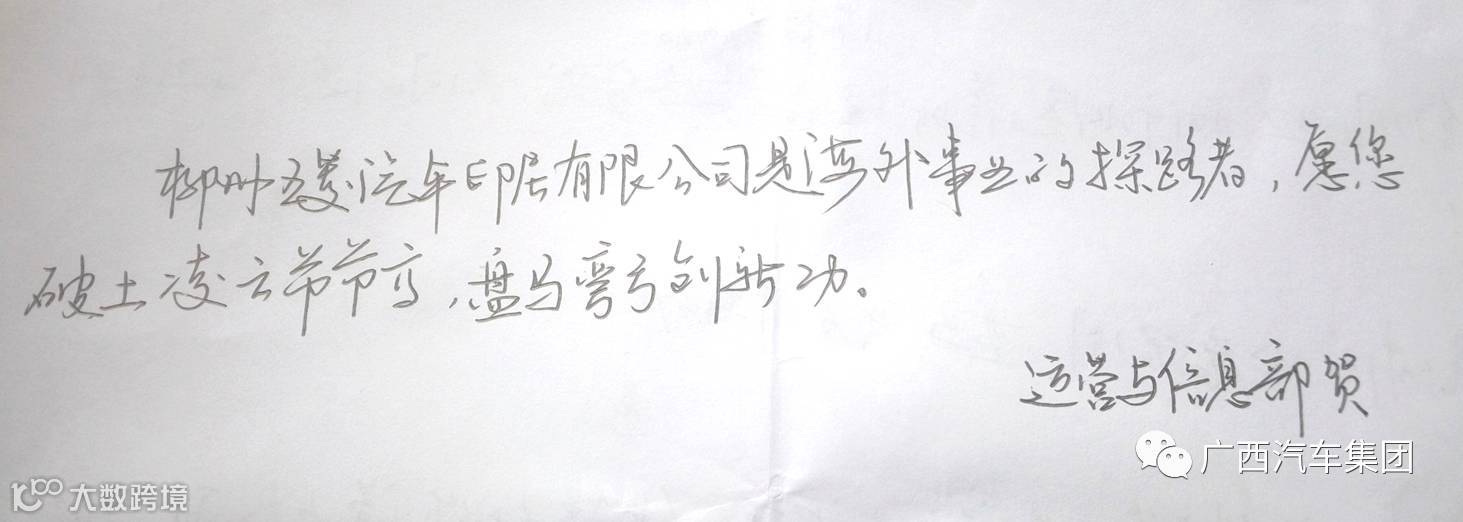 柳州五菱汽车印尼有限公司是海外事业的探路者，愿您
破土凌云节节高，盘马弯弓创新功。
运营与信息部贺
广西汽车集团
大数跨境